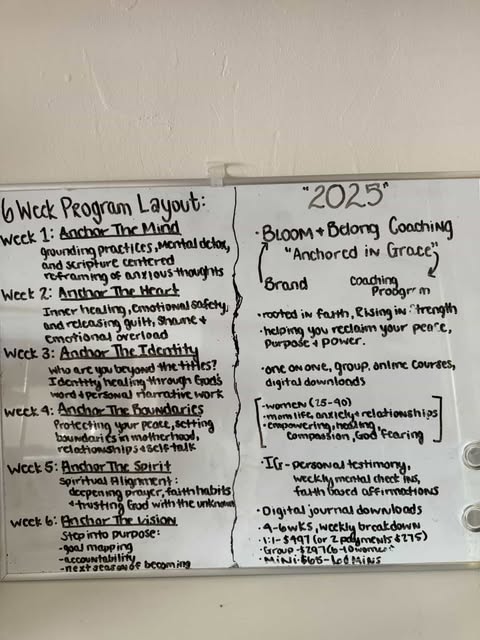 6 Week Program Layout:
Week 1: Anchor The Mind
grounding practices, Mental detox,
and scripture centered
reframing of anxious thoughts
Week 2: Anchor The Heart
Inner healing, Emotional safety,
and releasing guilt, Shame +
Emotional overload
Week 3: Anchor The Identity
who are you beyond the titles?
Identity healing through God's
word + personal narrative work
Week 4: Anchor The Boundaries
Protecting your peace, setting
boundaries in motherhood,
relationships + self talk
Week 5: Anchor The Spirit
Spiritual Alignment:
deepening prayer, faith habits
+ trusting God with the unknown
Week 6: Anchor The Vision
Step into purpose:
-goal mapping
-accountability
-next season of becoming
"2025"
• Bloom + Belong Coaching
"Anchored in Grace"
Brand
coaching
Program
• rooted in faith, Rising in Strength
• helping you reclaim your peace,
Purpose + power.
• one on one, group, online courses,
digital downloads
-women (25-40)
-mom life, anxiety + relationships
-empowering, healing,
compassion, God fearing
• IG - personal testimony,
weekly mental check ins,
faith based affirmations
• Digital journal downloads
• 4-6wks, weekly breakdown
• 1:1 - $497 (or 2 payments $275)
Group - $297 (6-10 women)
• Mini: $65 - 60 Mins